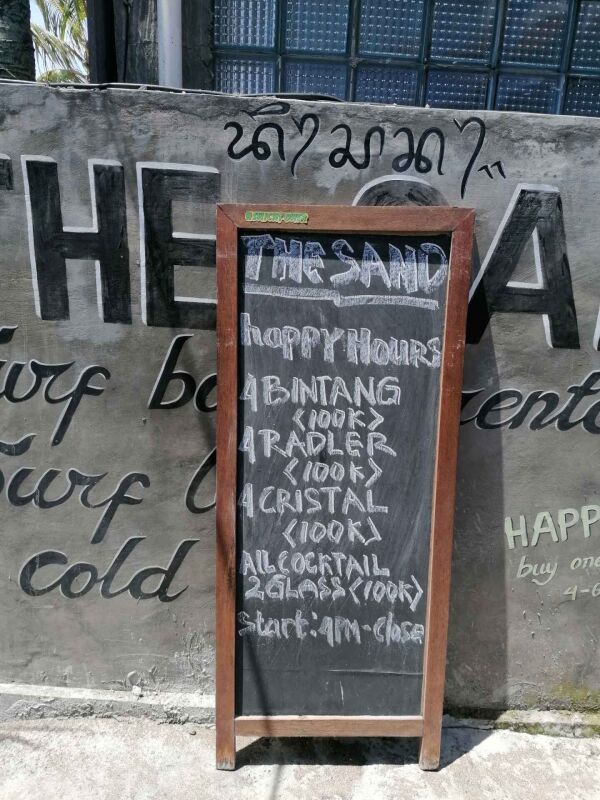 THE SA
urf bo
renta
Surf
cold
HAPP
buy one
4-6
THE SAND
happy Hours
4 BINTANG
<100K>
4 RADLER
<100K>
4 CRISTAL
<100K>
All COCKTAIL
2 GLASS <100K>
Start: 4PM - Close